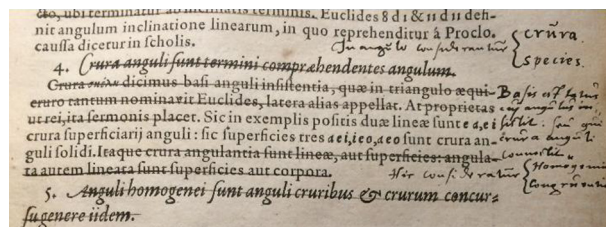 cto, ubi terminatur ab inclinatis terminis. Euclides 8 d 1 & 11 d 11 defi-
nit angulum inclinatione linearum, in quo reprehenditur á Proclo.
caussa dicetur in scholis.
In angulo considerantur
crura
species.
4. Crura anguli sunt termini compræhendentes angulum.
Crura dicimus basi anguli insistentia, quæ in triangulo æqui-
cruro tantum nominavit Euclides, latera alias appellat. At proprietas
ut rei, ita sermonis placet. Sic in exemplis positis duæ lineæ sunt e a, e i
crura superficiarij anguli: sic superficies tres a e i, i e o, a e o sunt crura an-
guli solidi. Itaque crura angulantia sunt lineæ, aut superficies: angula-
ta autem lineata sunt superficies aut corpora.
Basis est
crura anguli
Hic considerantur
Homogenia
Congruentia
5. Anguli homogenei sunt anguli cruribus & crurum concur-
su genere iidem.